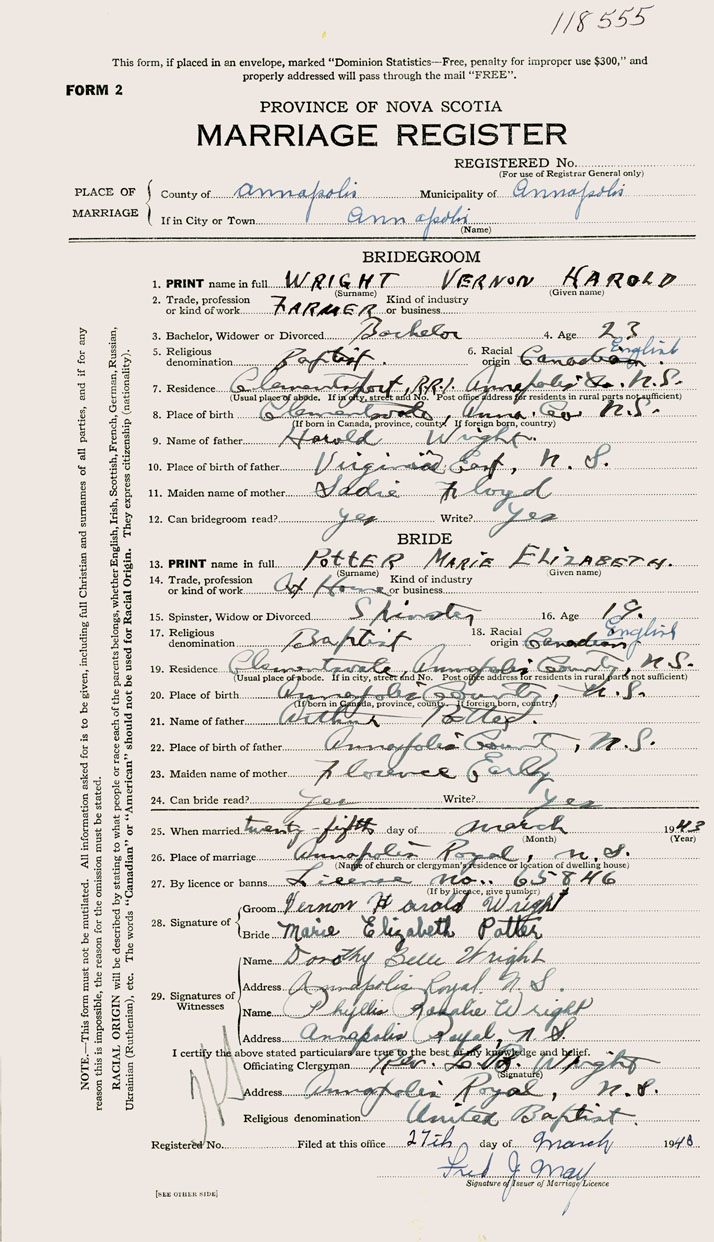 118555
This form, if placed in an envelope, marked "Dominion Statistics—Free, penalty for improper use $300," and
properly addressed will pass through the mail "FREE".
FORM 2
PROVINCE OF NOVA SCOTIA
MARRIAGE REGISTER
REGISTERED No.
(For use of Registrar General only)
PLACE OF MARRIAGE
County of Annapolis Municipality of Annapolis
If in City or Town Annapolis
(Name)
BRIDEGROOM
1. PRINT name in full WRIGHT VERNON HAROLD
(Surname) (Given name)
2. Trade, profession or kind of work FARMER Kind of industry or business
3. Bachelor, Widower or Divorced Bachelor 4. Age 23
5. Religious denomination Baptist 6. Racial origin Canadian English
7. Residence Clementsport, R.R.1. Annapolis Co. N.S.
(Usual place of abode. If in city, street and No. Post office address for residents in rural parts not sufficient)
8. Place of birth Clementsvale, Anna. Co N.S.
(If born in Canada, province, county. If foreign born, country)
9. Name of father Harold Wright.
10. Place of birth of father Virginia East, N.S.
11. Maiden name of mother Sadie Floyd
12. Can bridegroom read? yes Write? Yes
BRIDE
13. PRINT name in full POTTER MARIE ELIZABETH.
(Surname) (Given name)
14. Trade, profession or kind of work At Home Kind of industry or business
15. Spinster, Widow or Divorced Spinster 16. Age 19.
17. Religious denomination Baptist 18. Racial origin Canadian English
19. Residence Clementsvale, Annapolis County, N.S.
(Usual place of abode. If in city, street and No. Post office address for residents in rural parts not sufficient)
20. Place of birth Annapolis County, N.S.
(If born in Canada, province, county. If foreign born, country)
21. Name of father Arthur Potter.
22. Place of birth of father Annapolis County, N.S.
23. Maiden name of mother Florence Early
24. Can bride read? Yes Write? Yes
25. When married twenty-fifth day of March 1943
(Month) (Year)
26. Place of marriage Annapolis Royal, N.S.
(Name of church or clergyman's residence or location of dwelling house)
27. By licence or banns License No.. 65846
(If by licence, give number)
28. Signature of
Groom Vernon Harold Wright
Bride Marie Elizabeth Potter
29. Signatures of Witnesses
Name Dorothy Belle Wright
Address Annapolis Royal N.S.
Name Phyllis Rosalie Wright
Address Annapolis Royal, N.S
I certify the above stated particulars are true to the best of my knowledge and belief.
Officiating Clergyman Rev. Wright
(Signature)
Address Annapolis Royal, N.S.
Religious denomination United Baptist.
Registered No. Filed at this office 27th day of March 194
Fred J May
Signature of Issuer of Marriage Licence
[SEE OTHER SIDE]
NOTE.—This form must not be mutilated. All information asked for is to be given, including full Christian and surnames of all parties, and if for any
reason this is impossible, the reason for the omission must be stated.
RACIAL ORIGIN will be described by stating to what people or race each of the parents belongs, whether English, Irish, Scottish, French, German, Russian,
Ukrainian (Ruthenian), etc. The words "Canadian" or "American" should not be used for Racial Origin. They express citizenship (nationality).